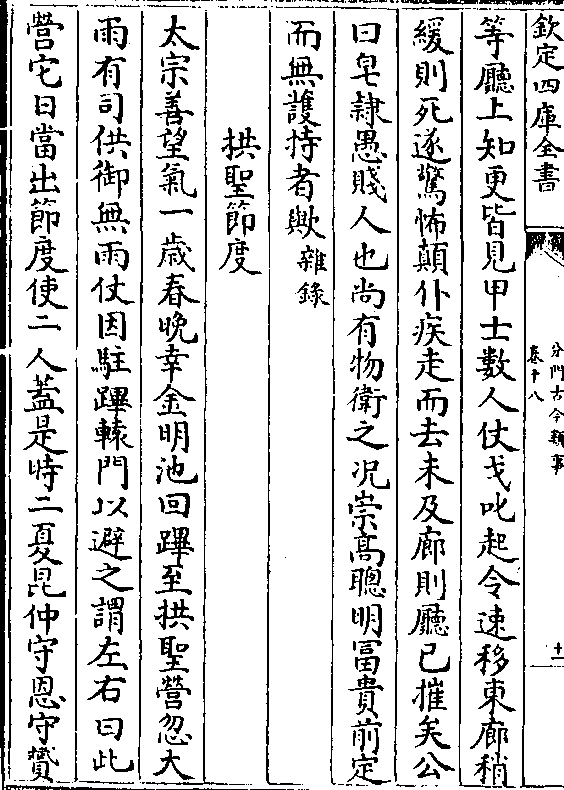 欽定四庫全書
分門古今類事
卷十八
十一
等廳上知更皆見甲士數人仗戈叱起令速移東廊稍
緩則死遂驚怖顛仆疾走而去未及廊則廳已摧矣公
曰皂隷愚賤人也尚有物衛之况崇髙聰明冨貴前定
而無護持者歟雜錄
拱聖節度
太宗善望氣一歳春晚幸金明池回蹕至拱聖營忽大
雨有司供御無雨仗因駐蹕轅門以避之謂左右曰此
營它日當出節度使二人蓋是時二夏昆仲守恩守贇